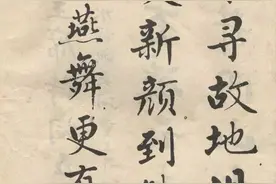 寻故地
新颜到
燕舞更有